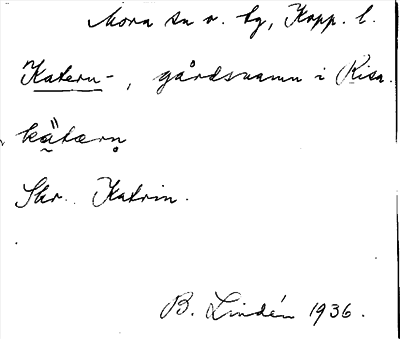 Mora sn o. by, Kopp. l.
Katern-, gårdsnamn i Risa.
kä̰tærn̥
Skr. Katrin.
B. Lindén 1936.